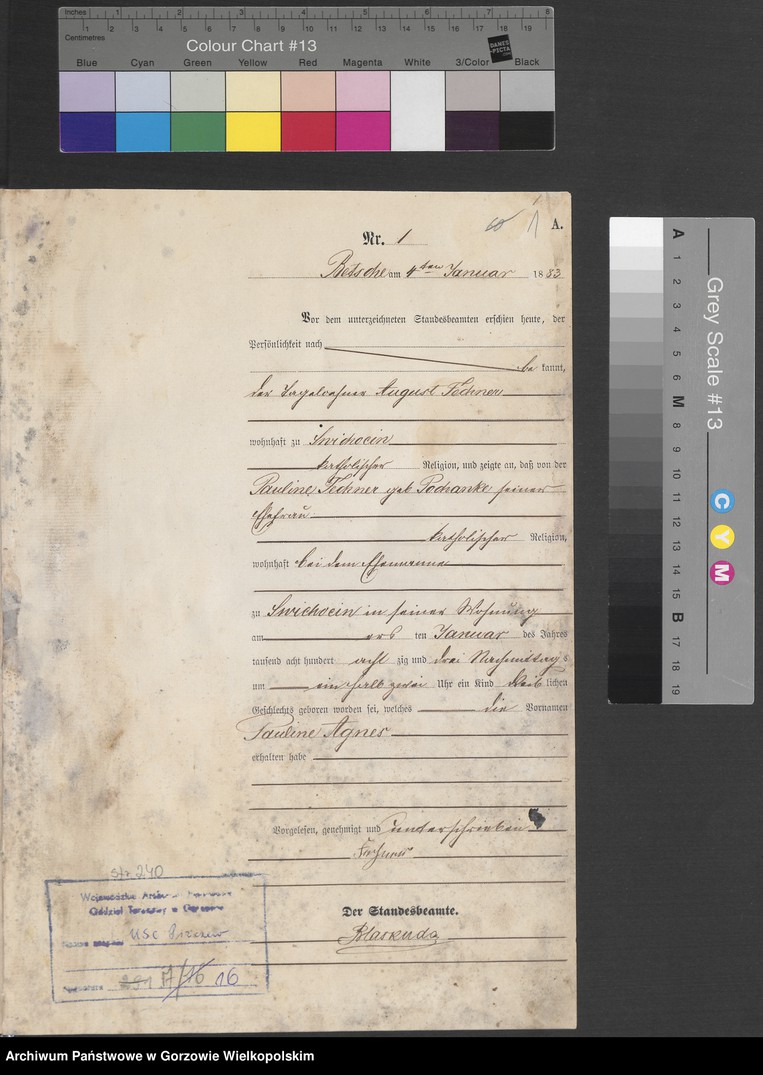 Inches 1 2 3 4 5 6 7 8
1 2 3 4 5 6 7 8 9 10 11 12 13 14 15 16 17 18 19
Centimetres
Colour Chart #13
DANES
PICTA
Blue Cyan Green Yellow Red Magenta White 3/Color Black
Grey Scale #13
A 1 2 3 4 5 6 M 8 9 10 11 12 13 14 15 B 17 18 19
C
Y
M
1 A.
Nr. 1
Betsche am 4ten Januar 1883
Vor dem unterzeichneten Standesbeamten erschien heute, der
Persönlichkeit nach
be kannt,
der Tageloehner August Fechner
wohnhaft zu Swichocin
katholischer Religion, und zeigte an, daß von der
Pauline Fechner geb Pochanke seiner
Ehefrau
katholischer Religion,
wohnhaft bei dem Ehemanne
zu Swichocin in seiner Wohnung
am ers ten Januar des Jahres
tausend acht hundert acht zig und drei Nachmittags
um ein halb zwei Uhr ein Kind weiblichen
Geschlechts geboren worden sei, welches die Vornamen
Pauline Agnes
erhalten habe
Vorgelesen, genehmigt und unterschrieben
Fechner
str 240
Der Standesbeamte.
USC
16
Archiwum Państwowe w Gorzowie Wielkopolskim